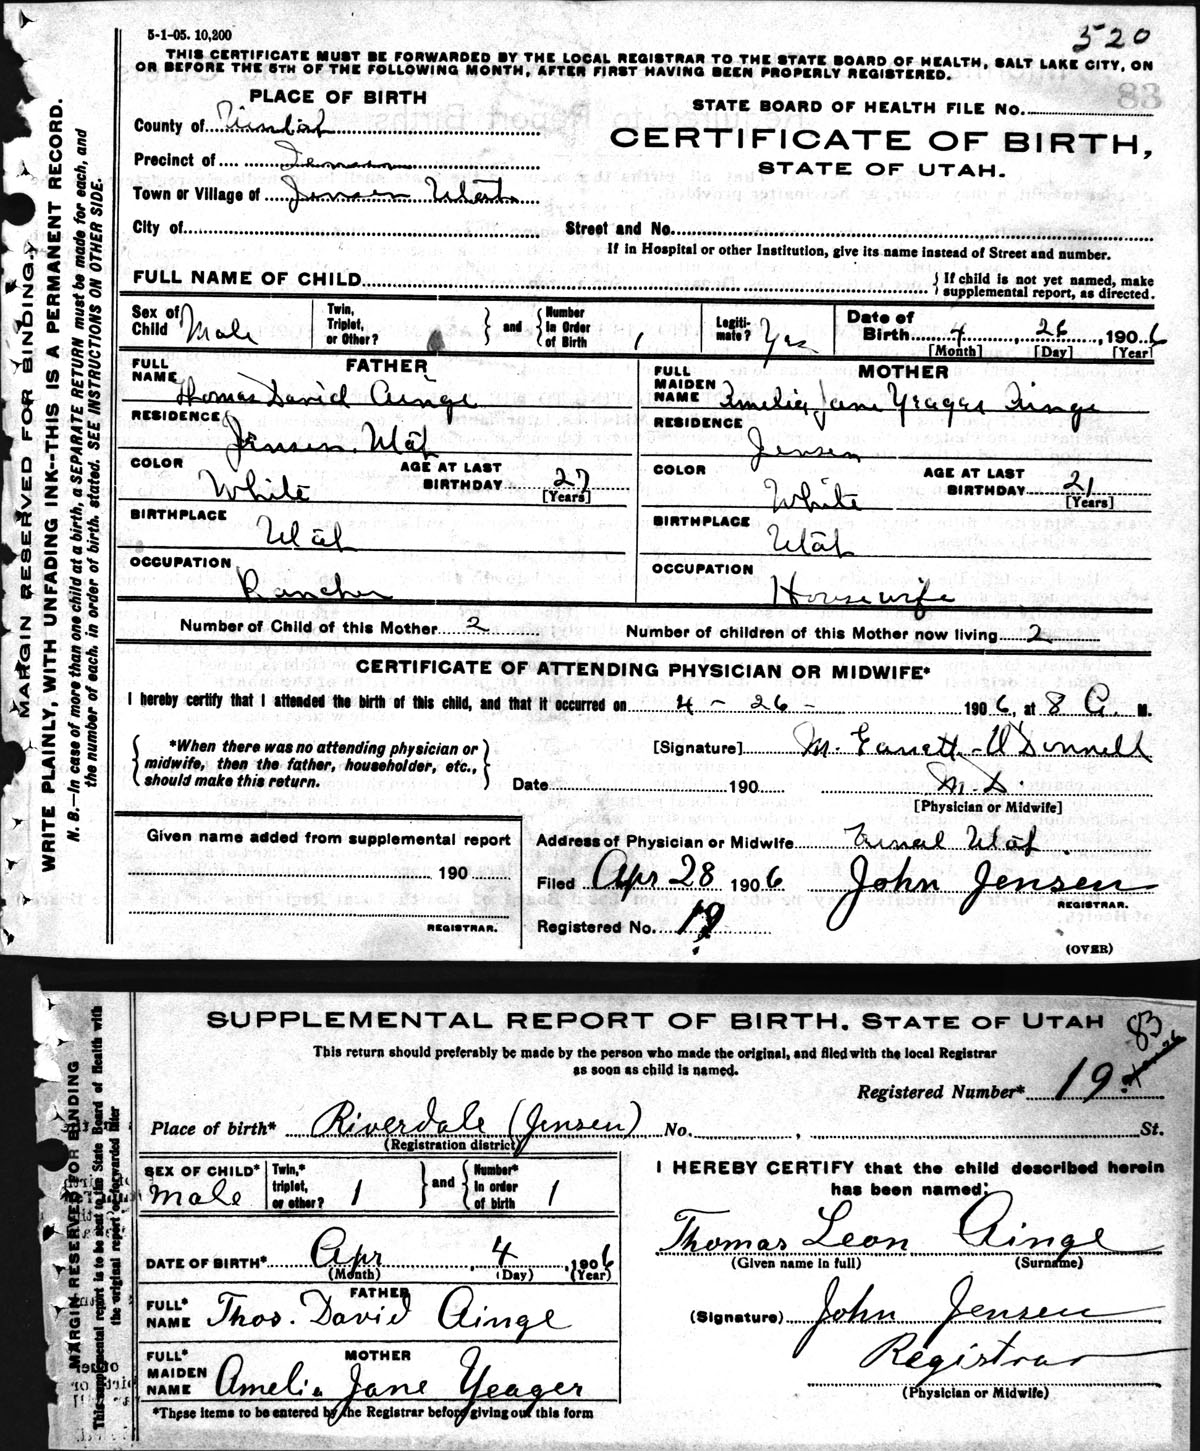 5-1-05. 10,200
520
THIS CERTIFICATE MUST BE FORWARDED BY THE LOCAL REGISTRAR TO THE STATE BOARD OF HEALTH, SALT LAKE CITY, ON
OR BEFORE THE 5TH OF THE FOLLOWING MONTH, AFTER FIRST HAVING BEEN PROPERLY REGISTERED.
83
PLACE OF BIRTH
STATE BOARD OF HEALTH FILE No.
County of Uintah
CERTIFICATE OF BIRTH,
STATE OF UTAH.
Precinct of Jensen
Town or Village of Jensen Utah
City of
Street and No.
If in Hospital or other Institution, give its name instead of Street and number.
FULL NAME OF CHILD
{ If child is not yet named, make
supplemental report, as directed.
Sex of Child Male
Twin, Triplet, or Other?
} and { Number In Order of Birth 1
Legiti-mate? Yes
Date of Birth 4 [Month] 26 [Day], 1906 [Year]
FATHER
FULL NAME Thomas David Ainge
RESIDENCE Jensen. Utah
COLOR White
AGE AT LAST BIRTHDAY 27 [Years]
BIRTHPLACE Utah
OCCUPATION Rancher
MOTHER
FULL MAIDEN NAME Amelia Jane Yeager Ainge
RESIDENCE Jensen
COLOR White
AGE AT LAST BIRTHDAY 21 [Years]
BIRTHPLACE Utah
OCCUPATION Housewife
Number of Child of this Mother 2
Number of children of this Mother now living 2
CERTIFICATE OF ATTENDING PHYSICIAN OR MIDWIFE*
I hereby certify that I attended the birth of this child, and that it occurred on 4 - 26 - 1906, at 8 A. M.
{ *When there was no attending physician or
midwife, then the father, householder, etc.,
should make this return. }
[Signature] M. Garrett-O'Donnell
Date 190
M.D.
[Physician or Midwife]
Given name added from supplemental report
190
REGISTRAR.
Address of Physician or Midwife Vernal Utah.
Filed Apr 28 1906 John Jensen
REGISTRAR.
Registered No. 19
(OVER)
MARGIN RESERVED FOR BINDING.
WRITE PLAINLY, WITH UNFADING INK--THIS IS A PERMANENT RECORD.
N. B.—In case of more than one child at a birth, a SEPARATE RETURN must be made for each, and
the number of each, in order of birth, stated. SEE INSTRUCTIONS ON OTHER SIDE.
SUPPLEMENTAL REPORT OF BIRTH. STATE OF UTAH
83
This return should preferably be made by the person who made the original, and filed with the local Registrar
as soon as child is named.
Registered Number* 19
Place of birth* Riverdale (Jensen) No. , St.
(Registration district)
SEX OF CHILD* Male
Twin,* triplet, or other? 1
} and { Number* in order of birth 1
DATE OF BIRTH* Apr, 4, 1906
(Month) (Day) (Year)
FATHER
FULL* NAME Thos. David Ainge
MOTHER
FULL* MAIDEN NAME Amelia Jane Yeager
*These items to be entered by the Registrar before giving out this form
I HEREBY CERTIFY that the child described herein
has been named:
Thomas Leon Ainge
(Given name in full) (Surname)
(Signature) John Jensen
Registrar
(Physician or Midwife)
MARGIN RESERVED FOR BINDING
This supplemental report is to be sent to the State Board of Health with
the original report or forwarded later